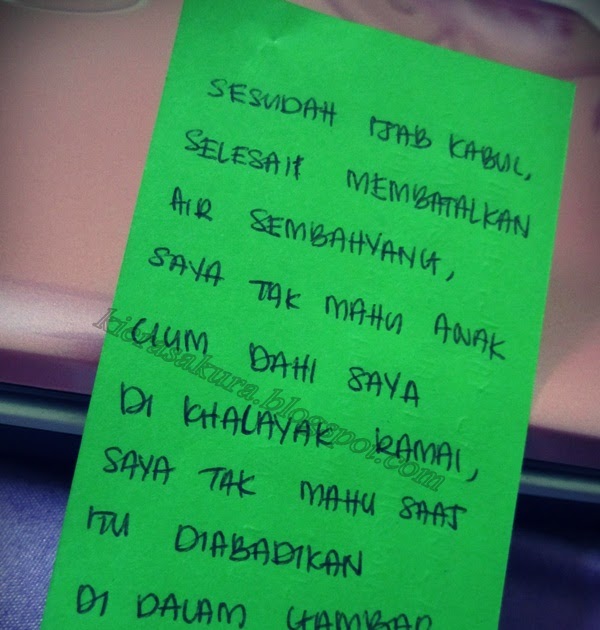 SESUDAH IJAB KABUL,
SELESAI MEMBATALKAN
AIR SEMBAHYANG,
SAYA TAK MAHU AWAK
CIUM DAHI SAYA
DI KHALAYAK RAMAI,
SAYA TAK MAHU SAAT
ITU DIABADIKAN
DI DALAM GAMBAR
kierasakura.blogspot.com